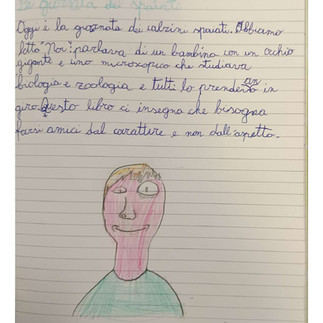 La giornata dei spaiati
Oggi è la giornata dei calzini spaiati. Abbiamo
letto "Noi: parlava di un bambino con un occhio
gigante e uno microscopico che studiava
biologia e zoologia e tutti lo prendevano in
giro. Questo libro ci insegna che bisogna
farsi amici dal carattere e non dall'aspetto.